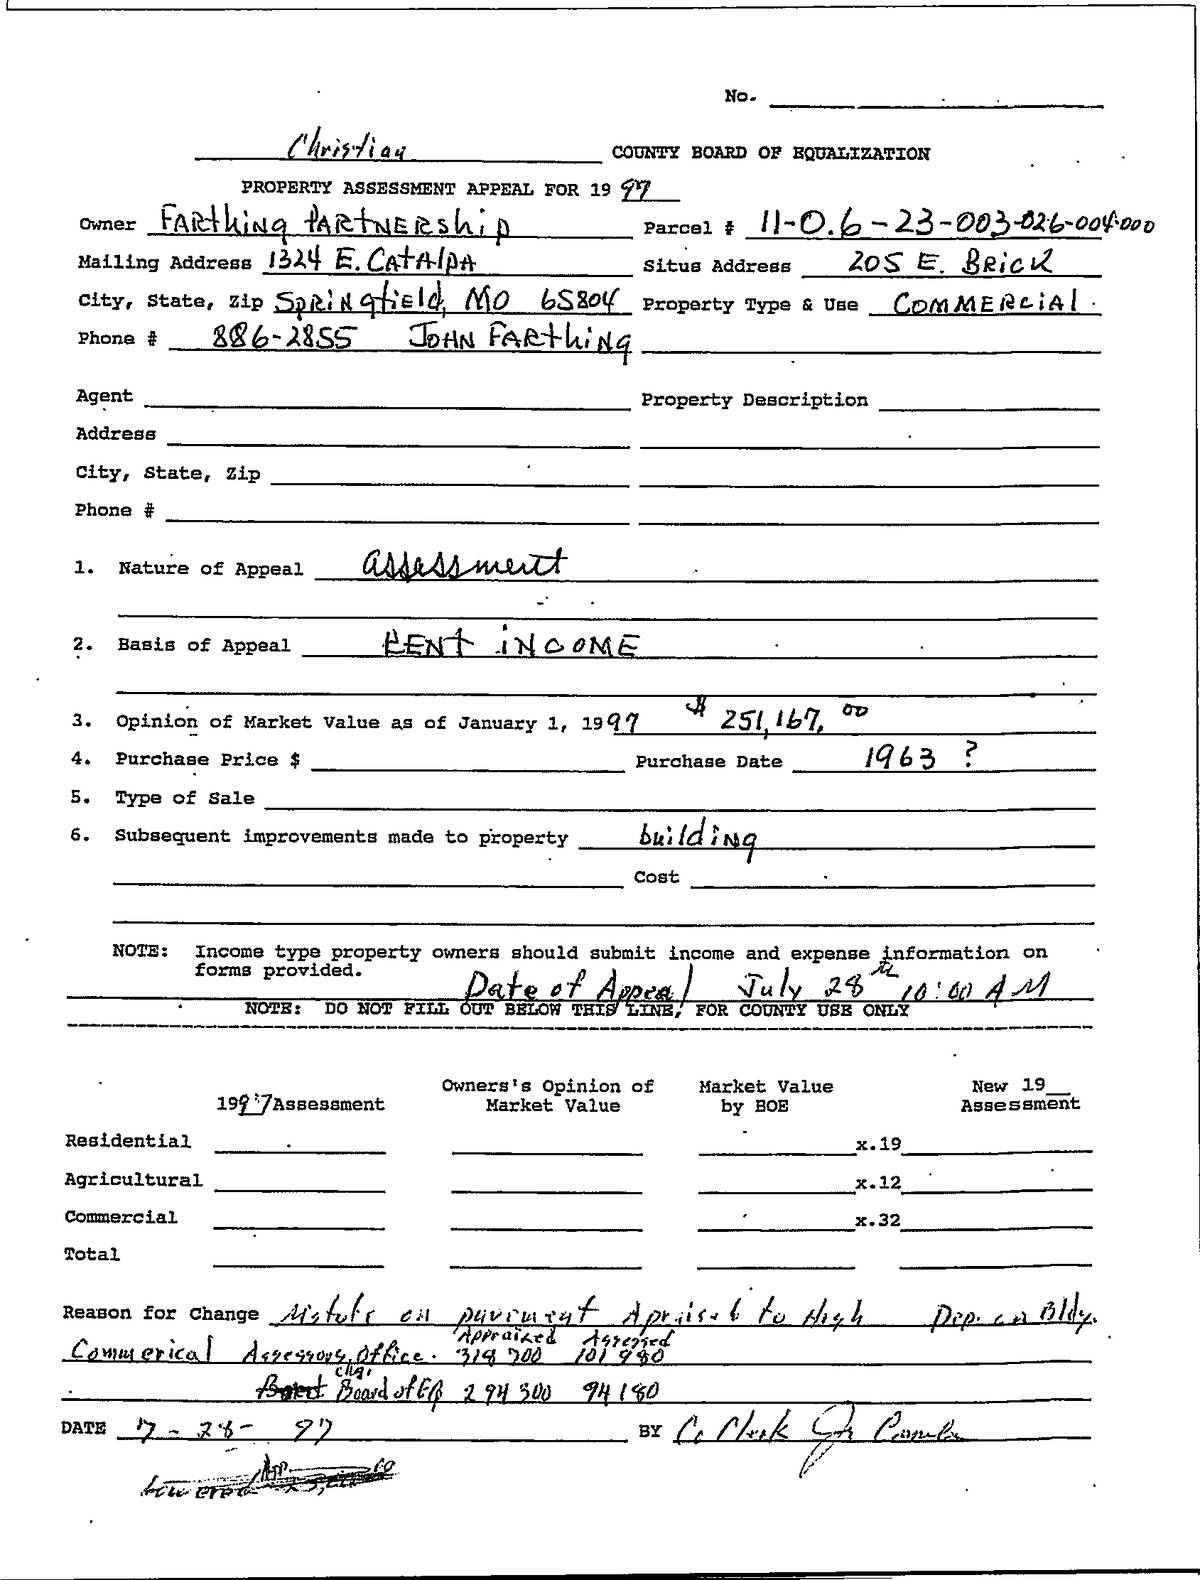 No.
Christian COUNTY BOARD OF EQUALIZATION
PROPERTY ASSESSMENT APPEAL FOR 19 97
Owner FARthiNg PARTNERShip Parcel # 11-0.6-23-003-026-004.000
Mailing Address 1324 E. CATAlpA Situs Address 205 E. BRicK
City, State, Zip SpRiNgfield, MO 65804 Property Type & Use COMMERCIAL
Phone # 886-2855 JOHN FARthiNg
Agent Property Description
Address
City, State, Zip
Phone #
1. Nature of Appeal assessment
2. Basis of Appeal RENT iNCOME
3. Opinion of Market Value as of January 1, 1997 $ 251,167.00
4. Purchase Price $ Purchase Date 1963 ?
5. Type of Sale
6. Subsequent improvements made to property buildiNg
Cost
NOTE: Income type property owners should submit income and expense information on
forms provided.
Date of Appeal July 28th 10:00 AM
NOTE: DO NOT FILL OUT BELOW THIS LINE, FOR COUNTY USE ONLY
Owners's Opinion of Market Value New 19__
1997 Assessment Market Value by BOE Assessment
Residential x.19
Agricultural x.12
Commercial x.32
Total
Reason for Change on pavement Apraised to High Dep. on Bldg.
Appraised Assessed
Commerical Assessors Office. 318 700 101 980
chg.
Board of EQ 294 300 94 180
DATE 7-28-97 BY Co Clerk
lowered App.